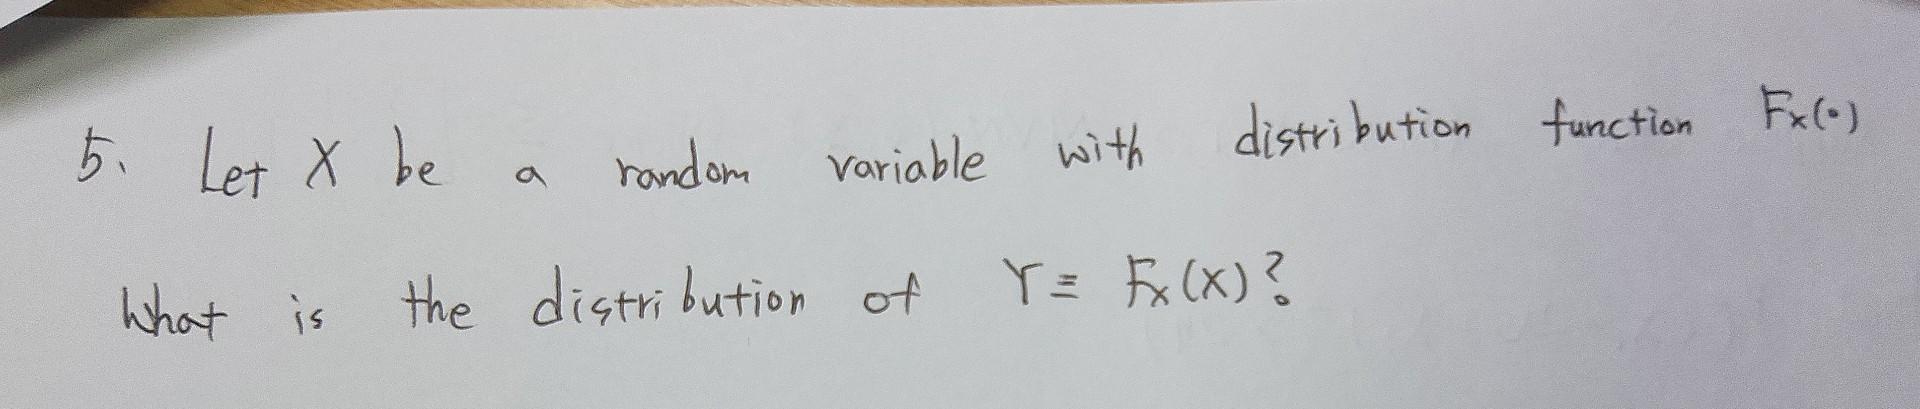 5. Let X be a random variable with distribution function Fx(·)
What is the distribution of Y ≡ Fx(X)?